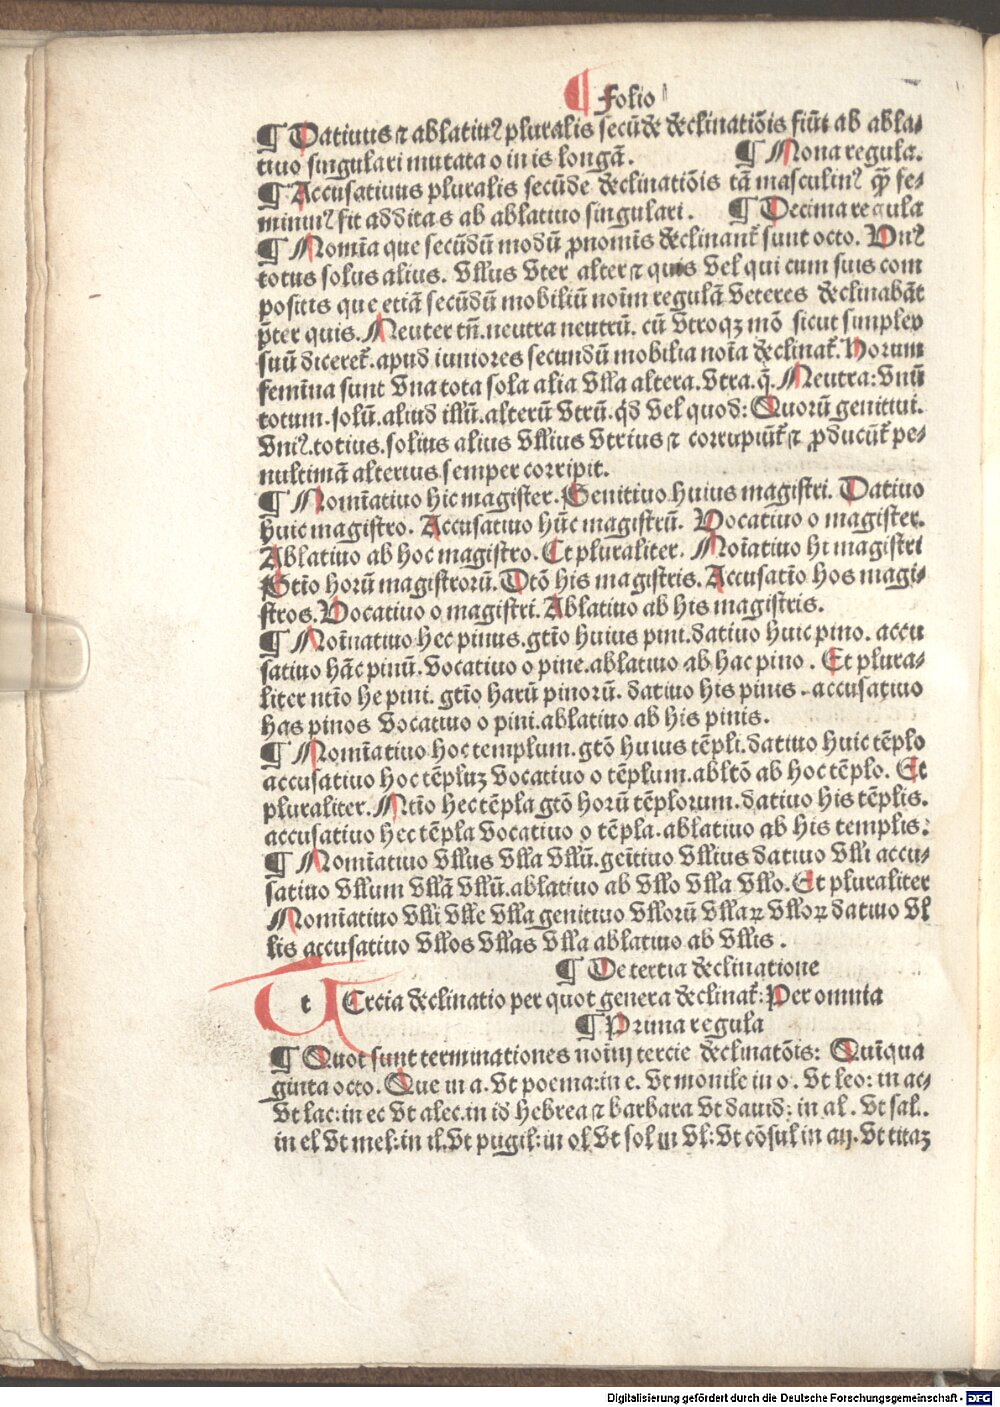 ¶ folio
¶ Datiuus ⁊ ablatiuꝰ pluralis secūde declinatiōis fiūt ab abla-
tiuo singulari mutata o in is longā. ¶ Nona regula.
¶ Accusatiuus pluralis secūde declinatiōis tā masculinꝰ ꝙ̄ fe-
mininꝰ fit addita s ab ablatiuo singulari. ¶ Decima regula
¶ Nomīa que secūdū modū ꝓnomīs declinant᷑ sunt octo. Vnꝰ
totus solus alius. vllus vter alter ⁊ quis vel qui cum suis com
positis que etiā secūdū mobiliū noīm regulā veteres declinabāt
p̄ter quis. Neuter tn̄. neutra neutrū. cū vtroqꝫ mō sicut simplex
suū diceret᷑. apud iuniores secundū mobilia noīa declinat᷑. Horum
femīna sunt vna tota sola alia vlla altera. vtra. q̄. Neutra: vnū
totum. solū. aliud illū. alterū vtrū. qd̄ vel quod: Quorū genitiui.
vniꝰ. totius. solius alius vllius vtrius ⁊ corripiūt᷑ ⁊ ꝓducūt᷑ pe-
nultimā alterius semper corripit.
¶ Nomīatiuo hic magister. Genitiuo huius magistri. Datiuo
huic magistro. Accusatiuo hūc magistrū. Vocatiuo o magister.
Ablatiuo ab hoc magistro. Et pluraliter. Noīatiuo hi magistri
Gtīo horū magistrorū. Dtō his magistris. Accusatīo hos magi-
stros. Vocatiuo o magistri. Ablatiuo ab his magistris.
¶ Noīnatiuo hec pinus. gtīo huius pini. datiuo huic pino. accu
satiuo hāc pinū. vocatiuo o pine. ablatiuo ab hac pino. Et plura-
liter ntīo he pini. gtīo harū pinorū. datiuo his pinis. accusatiuo
has pinos vocatiuo o pini. ablatiuo ab his pinis.
¶ Nomīatiuo hoc templum. gtō huius tēpli. datiuo huic tēplo
accusatiuo hoc tēpluꝫ vocatiuo o tēplum. abltō ab hoc tēplo. Et
pluraliter. Ntīo hec tēpla gtō horū tēplorum. datiuo his tēplis.
accusatiuo hec tēpla vocatiuo o tēpla. ablatiuo ab his templis:
¶ Nomīatiuo vllus vlla vllū. genītiuo vllius datiuo vlli accu-
satiuo vllum vllā vllū. ablatiuo ab vllo vlla vllo. Et pluraliter
Nomīatiuo vlli vlle vlla genitiuo vllorū vllaꝝ vlloꝝ datiuo vl
lis accusatiuo vllos vllas vlla ablatiuo ab vllis.
¶ De tertia declinatione
t Ercia declinatio per quot genera declinat᷑: Per omnia
¶ Prima regula
¶ Quot sunt terminationes noīnj tercie declinatōis: Quīqua
ginta octo. Que in a. vt poema: in e. vt monile in o. vt leo: in ac-
vt lac: in ec vt alec. in id hebrea ⁊ barbara vt dauid: in al. vt sal.
in el vt mel: in il. vt pugil: in ol vt sol in vl: vt cōsul in an. vt titaꝫ
Digitalisierung gefördert durch die Deutsche Forschungsgemeinschaft - DFG